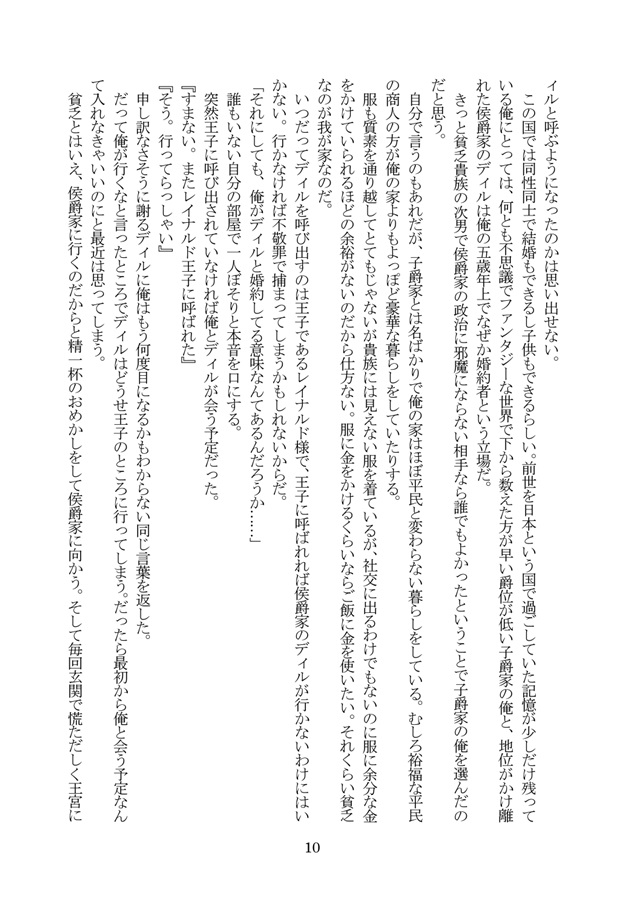 ィルと呼ぶようになったのかは思い出せない。
この国では同性同士で結婚もできるし子供もできるらしい。前世を日本という国で過ごしていた記憶が少しだけ残って
いる俺にとっては、何とも不思議でファンタジーな世界で下から数えた方が早い爵位が低い子爵家の俺と、地位がかけ離
れた侯爵家のディルは俺の五歳年上でなぜか婚約者という立場だ。
きっと貧乏貴族の次男で侯爵家の政治に邪魔にならない相手なら誰でもよかったということで子爵家の俺を選んだの
だと思う。
自分で言うのもあれだが、子爵家とは名ばかりで俺の家はほぼ平民と変わらない暮らしをしている。むしろ裕福な平民
の商人の方が俺の家よりもよっぽど豪華な暮らしをしていたりする。
服も質素を通り越してとてもじゃないが貴族には見えない服を着ているが、社交に出るわけでもないのに服に余分な金
をかけていられるほどの余裕がないのだから仕方ない。服に金をかけるくらいならご飯に金を使いたい。それくらい貧乏
なのが我が家なのだ。
いつだってディルを呼び出すのは王子であるレイナルド様で、王子に呼ばれれば侯爵家のディルが行かないわけにはい
かない。行かなければ不敬罪で捕まってしまうかもしれないからだ。
「それにしても、俺がディルと婚約してる意味なんてあるんだろうか……」
誰もいない自分の部屋で一人ぼそりと本音を口にする。
突然王子に呼び出されていなければ俺とディルが会う予定だった。
『すまない。またレイナルド王子に呼ばれた』
『そう。行ってらっしゃい』
申し訳なさそうに謝るディルに俺はもう何度目になるかもわからない同じ言葉を返した。
だって俺が行くなと言ったところでディルはどうせ王子のところに行ってしまう。だったら最初から俺と会う予定なん
て入れなきゃいいのにと最近は思ってしまう。
貧乏とはいえ、侯爵家に行くのだからと精一杯のおめかしをして侯爵家に向かう。そして毎回玄関で慌ただしく王宮に
10